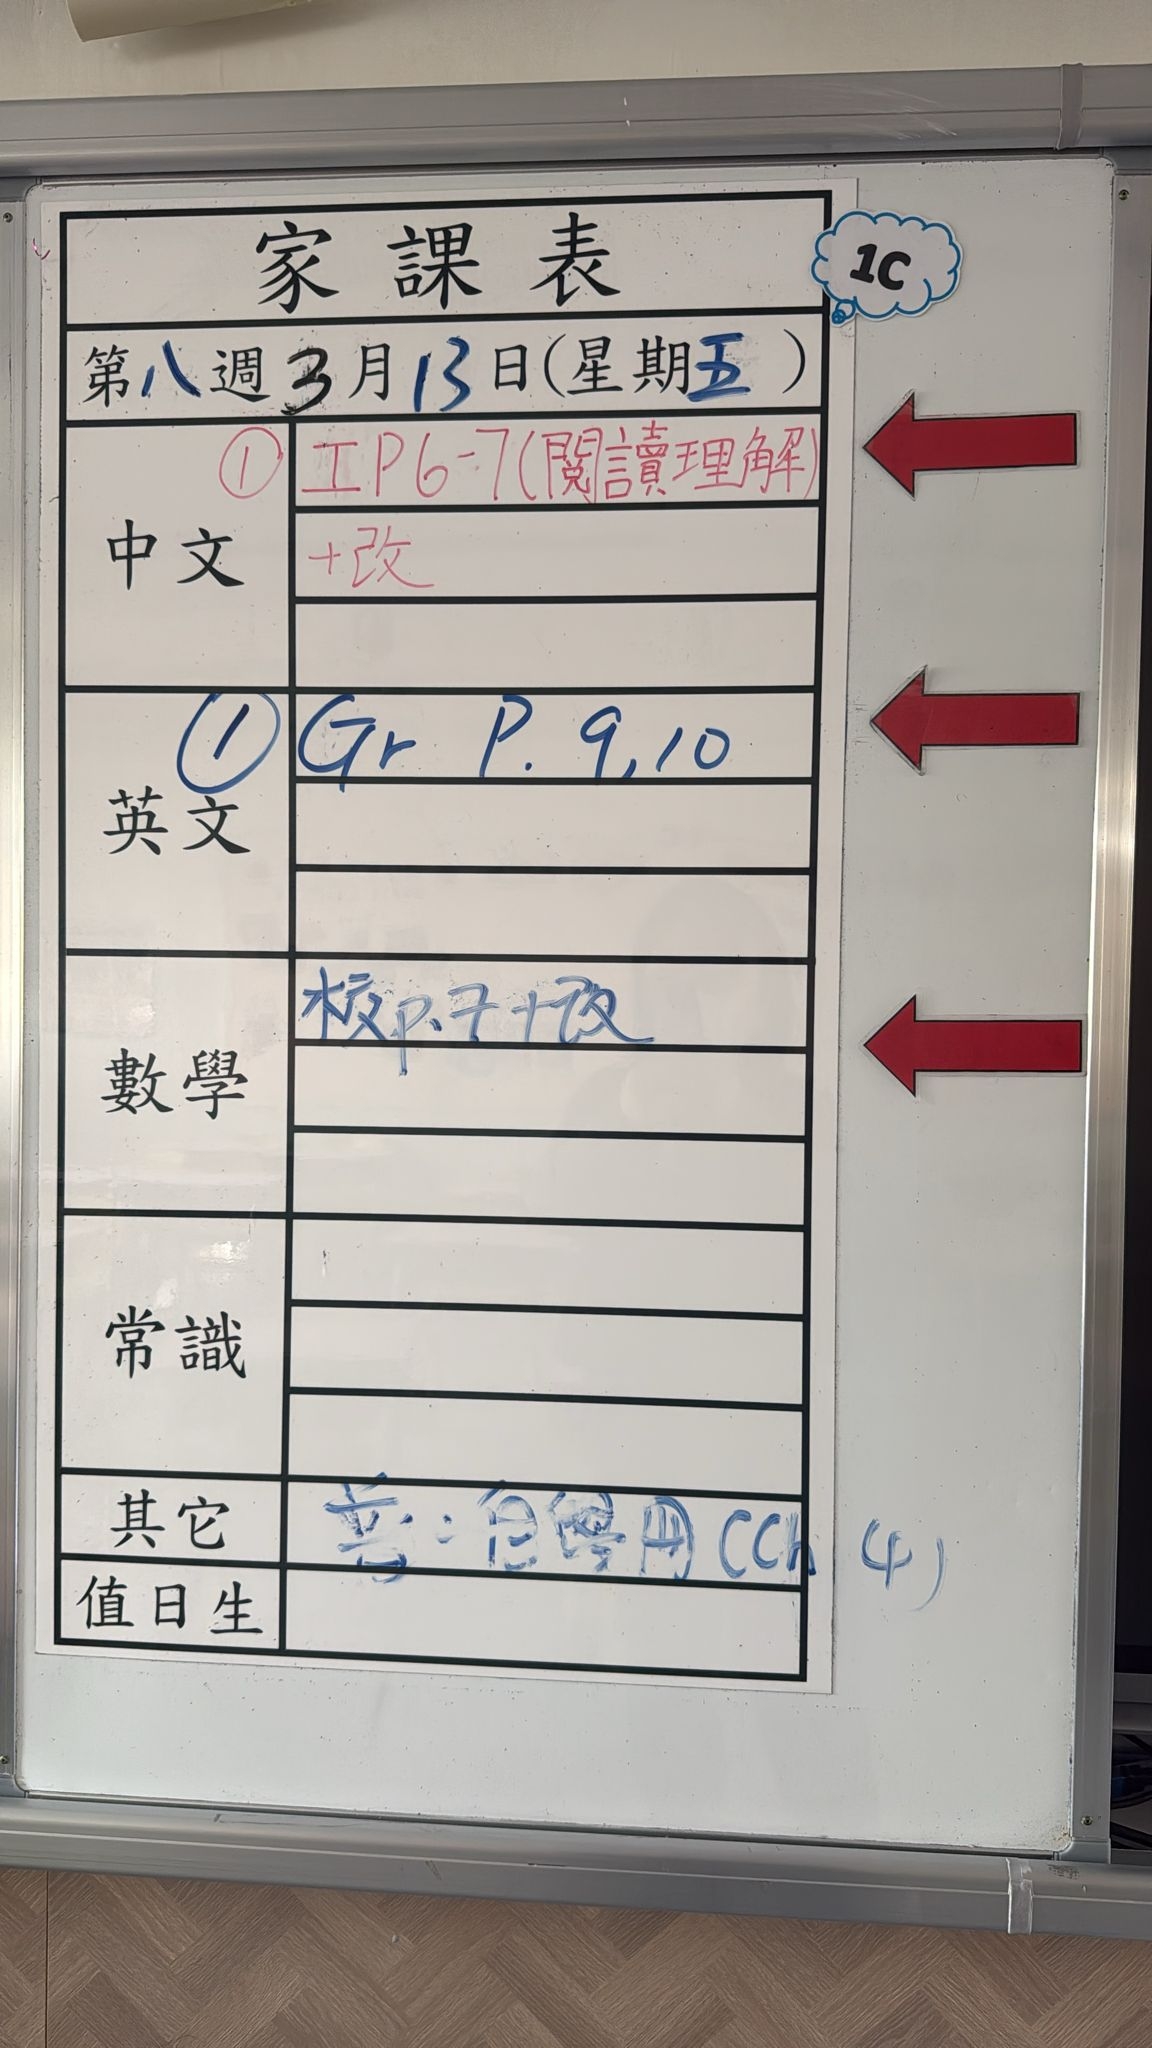 家課表
1C
第八週3月13日(星期五)
中文
① 工P6-7(閱讀理解)
+改
英文
① Gr P. 9,10
數學
校p.7+改
常識
其它
普:自學冊(Ch 4)
值日生